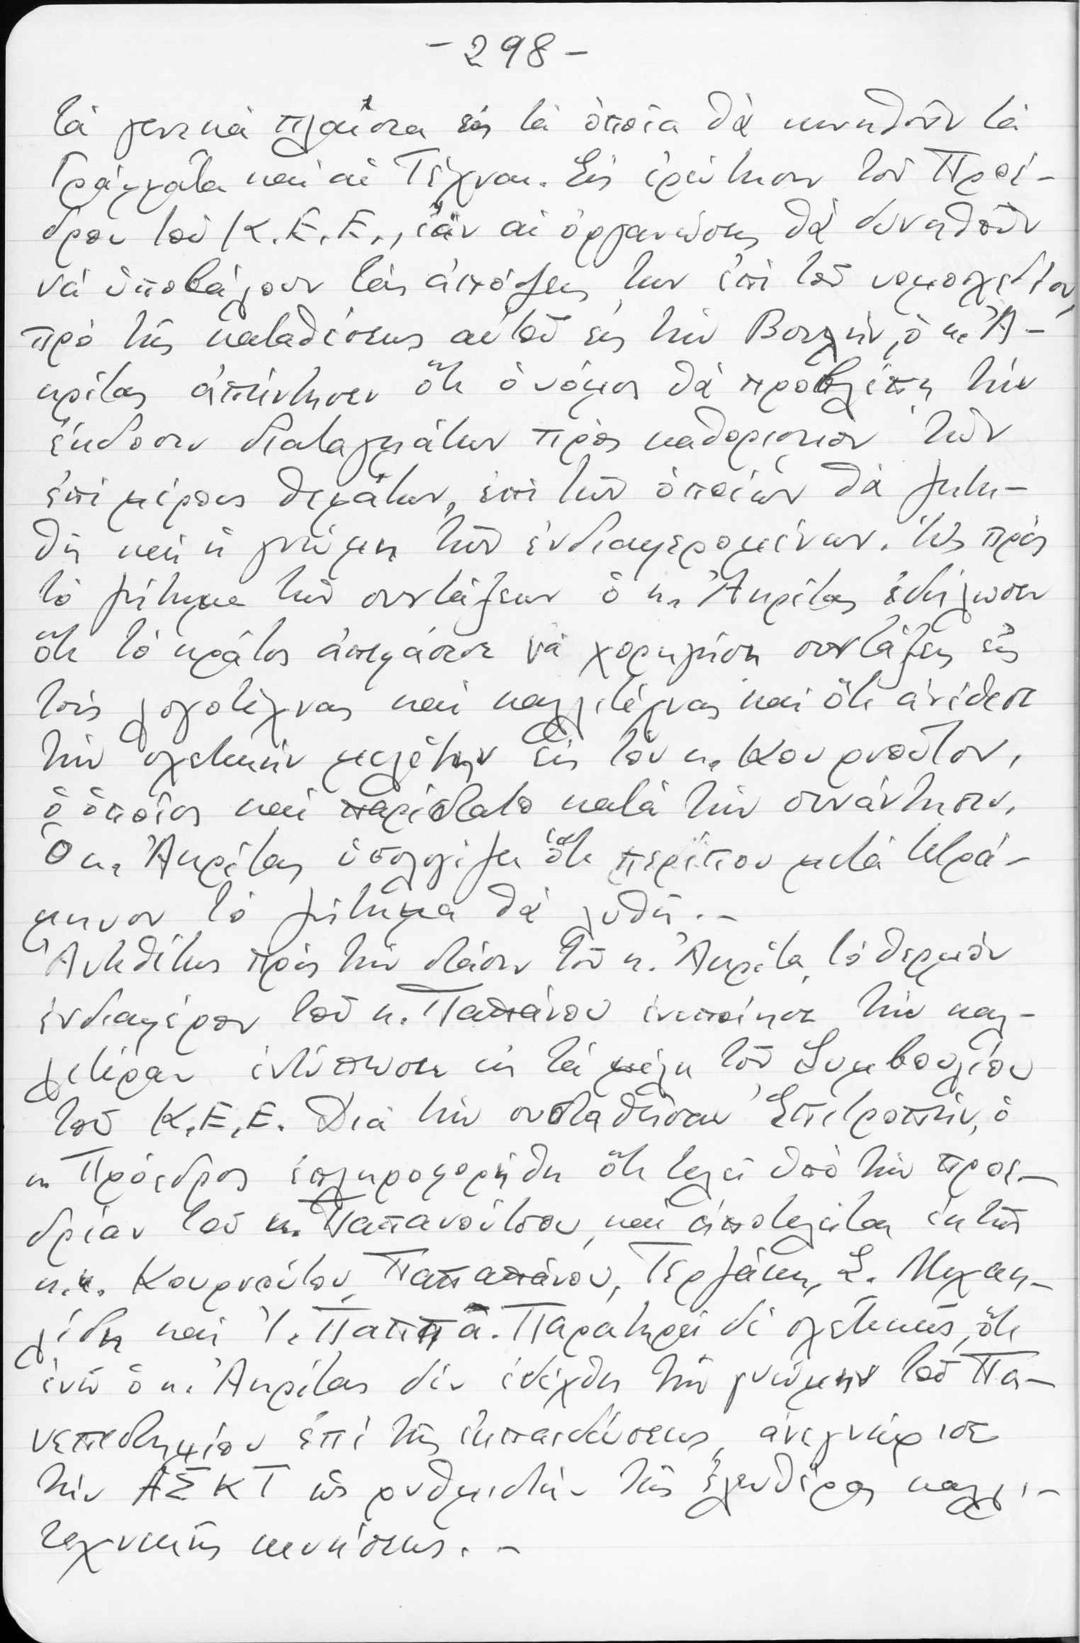 -298-
τά γενικά πλαίσια εἰς τά ὁποῖα θά κινηθοῦν τά
Γράμματα καί αἱ Τέχναι. Εἰς ἐρώτησιν τοῦ Προέ-
δρου τοῦ Κ.Ε.Ε., ἐάν αἱ ὀργανώσεις θά δυνηθοῦν
νά ὑποβάλουν τάς ἀπόψεις των ἐπί τοῦ νομοσχεδίου,
πρό τῆς καταθέσεως αὐτοῦ εἰς τήν Βουλήν, ὁ κ. Ἀ-
κρίτας ἀπήντησεν ὅτι ὁ νόμος θά προβλέπῃ τήν
ἔκδοσιν διαταγμάτων πρός καθορισμόν τῶν
ἐπί μέρους θεμάτων, ἐπί τῶν ὁποίων θά ζητη-
θῇ καί ἡ γνώμη τῶν ἐνδιαφερομένων. Ὡς πρός
τό ζήτημα τῶν συντάξεων ὁ κ. Ἀκρίτας ἐδήλωσεν
ὅτι τό κράτος ἀπεφάσισε νά χορηγήσῃ συντάξεις εἰς
τούς λογοτέχνας καί καλλιτέχνας καί ὅτι ἀνέθεσε
τήν σχετικήν μελέτην εἰς τόν κ. Κουρνοῦτον,
ὁ ὁποῖος καί παρίστατο κατά τήν συνάντησιν.
Ὁ κ. Ἀκρίτας ὑπολογίζει ὅτι περίπου μετά τετρά-
μηνον τό ζήτημα θά λυθῇ.-
Ἀντιθέτως πρός τήν στάσιν τοῦ κ. Ἀκρίτα, τό θερμόν
ἐνδιαφέρον τοῦ κ. Παπάνου ἐνεποίησε τήν καλ-
λιτέραν ἐντύπωσιν εἰς τά μέλη τοῦ Συμβουλίου
τοῦ Κ.Ε.Ε. Διά τήν συσταθεῖσαν Ἐπιτροπήν, ὁ
κ. Πρόεδρος ἐπληροφορήθη ὅτι τελεῖ ὑπό τήν προε-
δρίαν τοῦ κ. Παπανούτσου, καί ἀποτελεῖται ἐκ τῶν
κ.κ. Κουρνούτου, Παπαπάνου, Τερζάκη, Σ. Μιχαη-
λίδη καί Ἰ. Παππᾶ. Παρατηρεῖ δέ σχετικῶς, ὅτι
ἐνῶ ὁ κ. Ἀκρίτας δέν ἐδέχθη τήν γνώμην τοῦ Πα-
νεπιστημίου ἐπί τῆς ἐκπαιδεύσεως, ἀνεγνώρισε
τήν ΑΣΚΤ ὡς ρυθμιστήν τῆς ἐλευθέρας καλλι-
τεχνικῆς κινήσεως.-